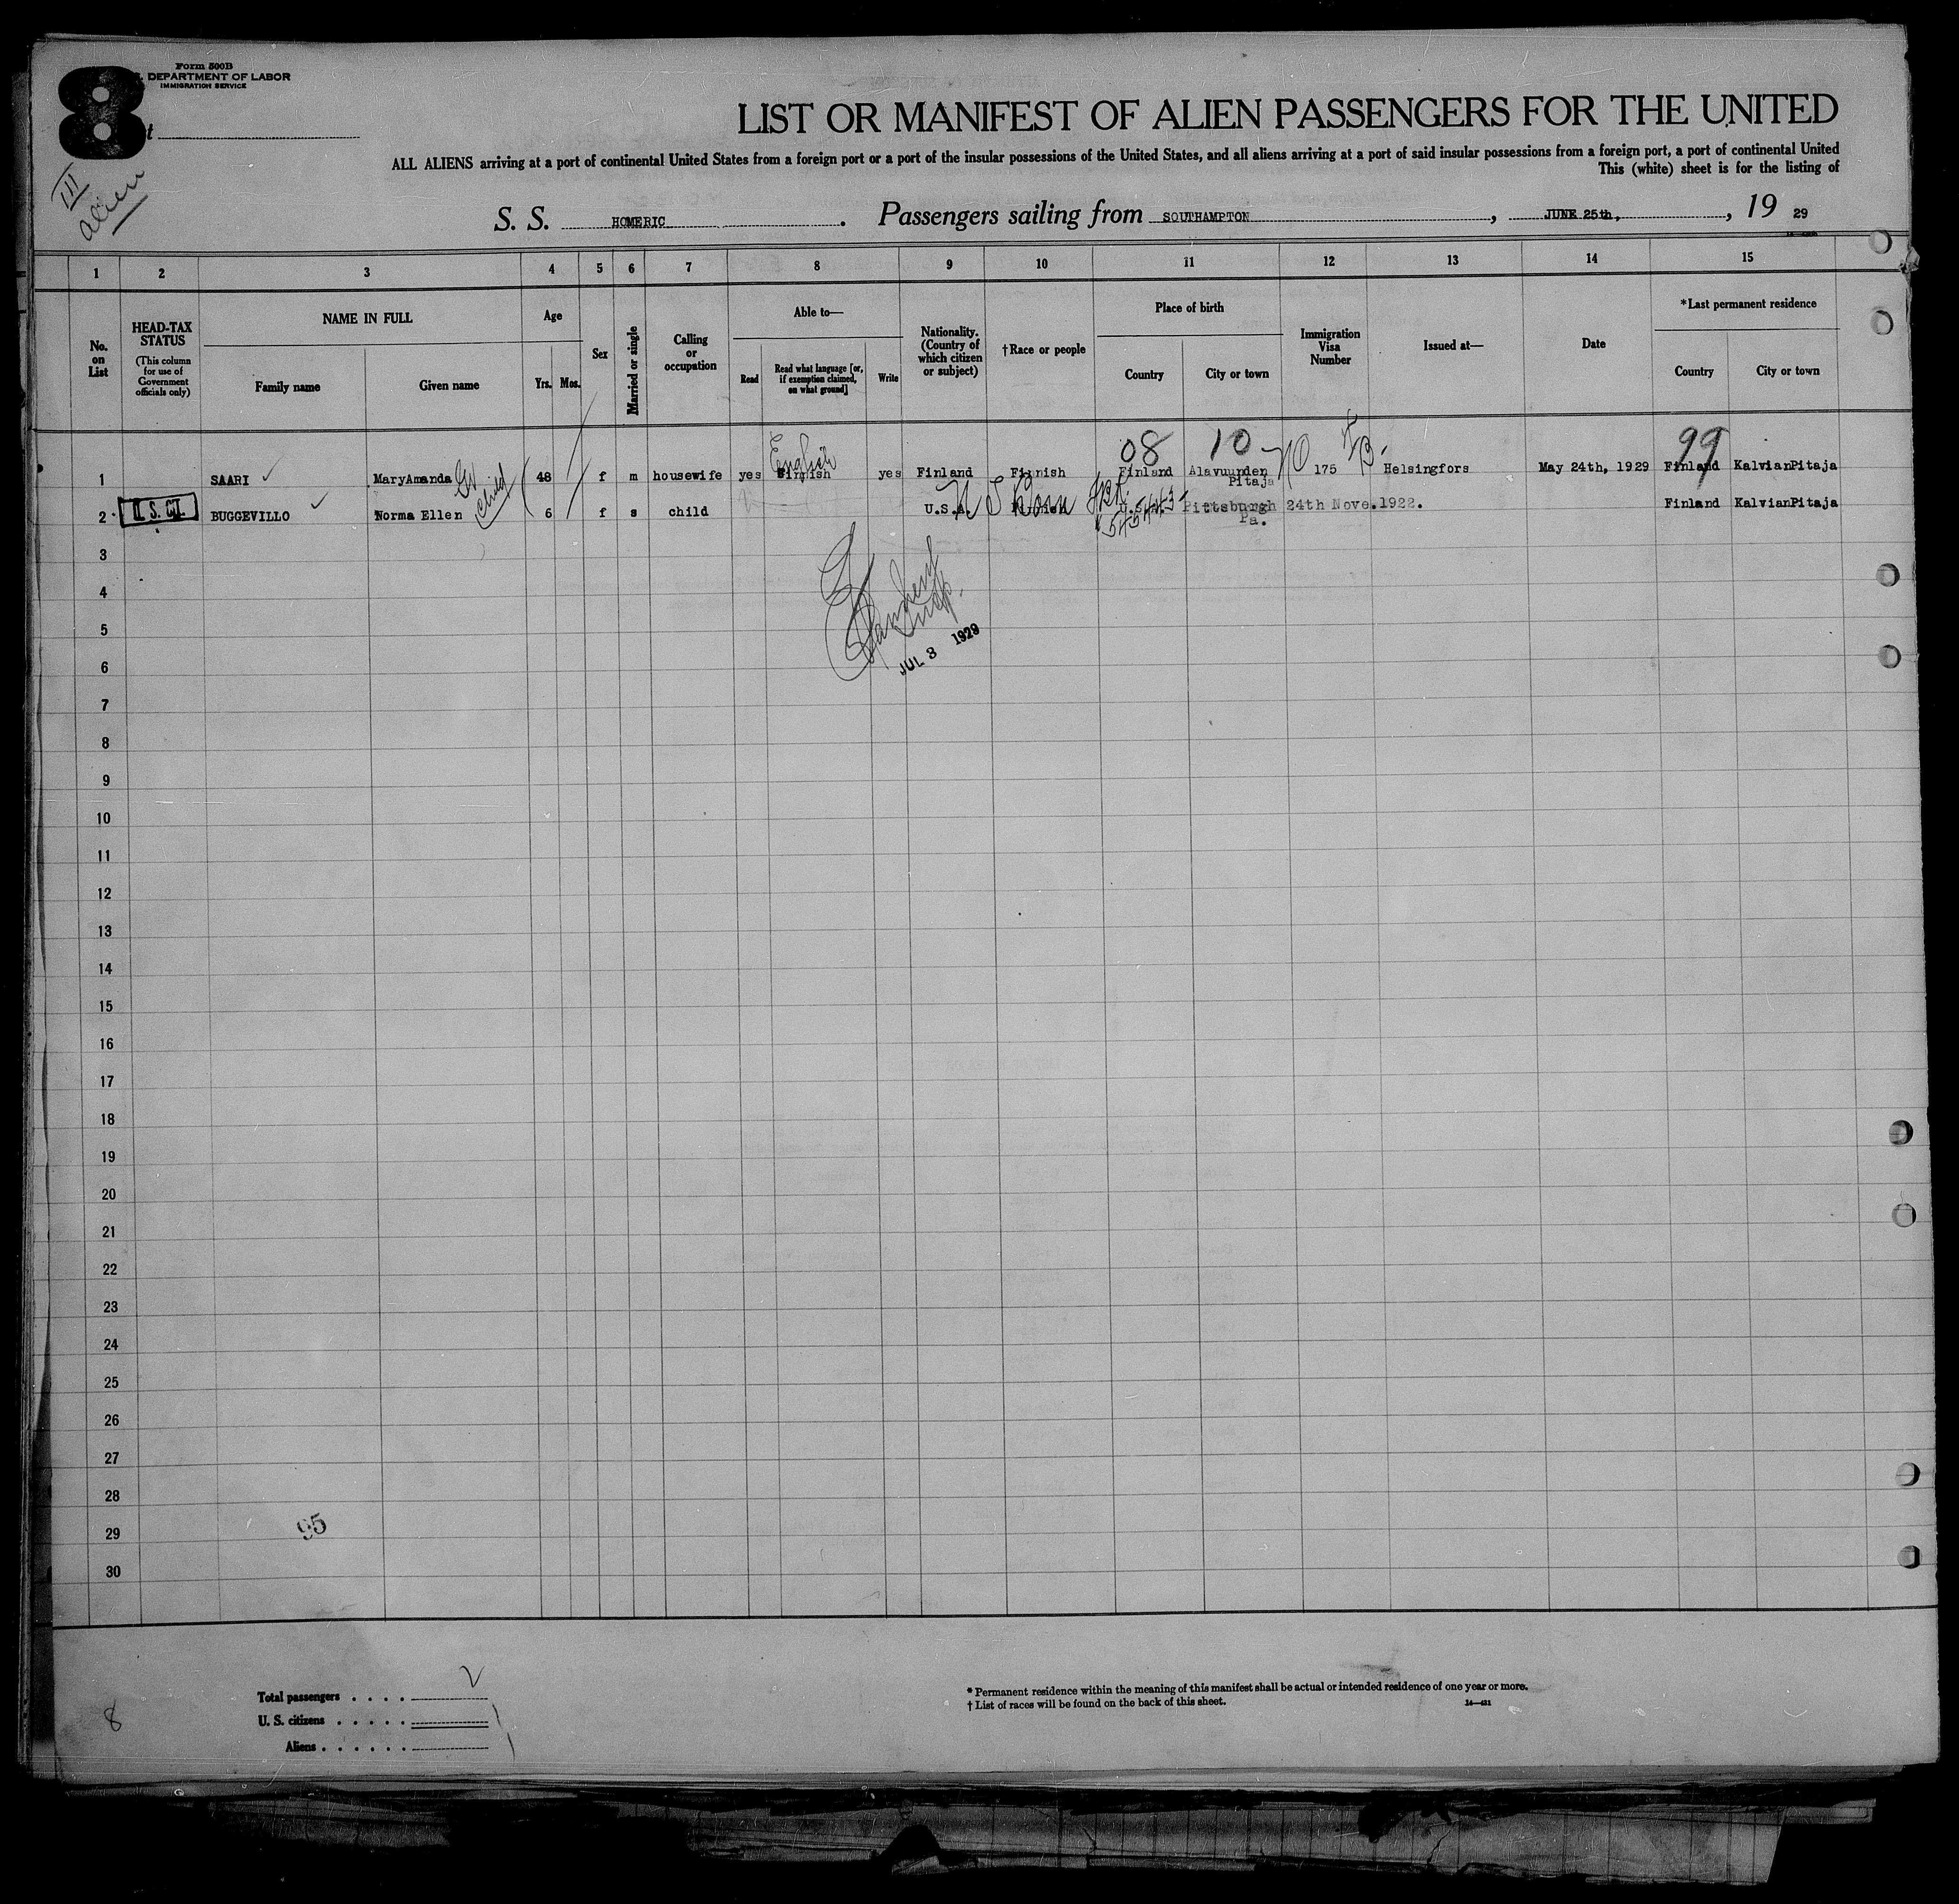 Form 500B
DEPARTMENT OF LABOR
IMMIGRATION SERVICE
8
t
III
alien
LIST OR MANIFEST OF ALIEN PASSENGERS FOR THE UNITED
ALL ALIENS arriving at a port of continental United States from a foreign port or a port of the insular possessions of the United States, and all aliens arriving at a port of said insular possessions from a foreign port, a port of continental United
This (white) sheet is for the listing of
S. S. HOMERIC. Passengers sailing from SOUTHAMPTON, JUNE 25th, , 19 29
1 2 3 4 5 6 7 8 9 10 11 12 13 14 15
No. on List
HEAD-TAX STATUS
(This column for use of Government officials only)
NAME IN FULL
Family name Given name
Age
Yrs. Mos.
Sex
Married or single
Calling or occupation
Able to—
Read
Read what language [or, if exemption claimed, on what ground]
Write
Nationality. (Country of which citizen or subject)
†Race or people
Place of birth
Country City or town
Immigration Visa Number
Issued at—
Date
*Last permanent residence
Country City or town
English 08 10 99
1 SAARI MaryAmanda 48 f m housewife yes Finnish yes Finland Finnish Finland Alavuunden Pitaja 175 Helsingfors May 24th, 1929 Finland KalvianPitaja
child
2 U. S. CT. BUGGEVILLO Norma Ellen 6 f s child U.S.A. Finnish U.S.A. Pittsburgh Pa. 24th Nove.1922. Finland KalvianPitaja
U S Born
3
4
5
6
JUL 3 1929
7
8
9
10
11
12
13
14
15
16
17
18
19
20
21
22
23
24
25
26
27
28
29
95
30
Total passengers . . . . 2
U. S. citizens . . . . . 1
Aliens . . . . . . 1
8
* Permanent residence within the meaning of this manifest shall be actual or intended residence of one year or more.
† List of races will be found on the back of this sheet.
14—431